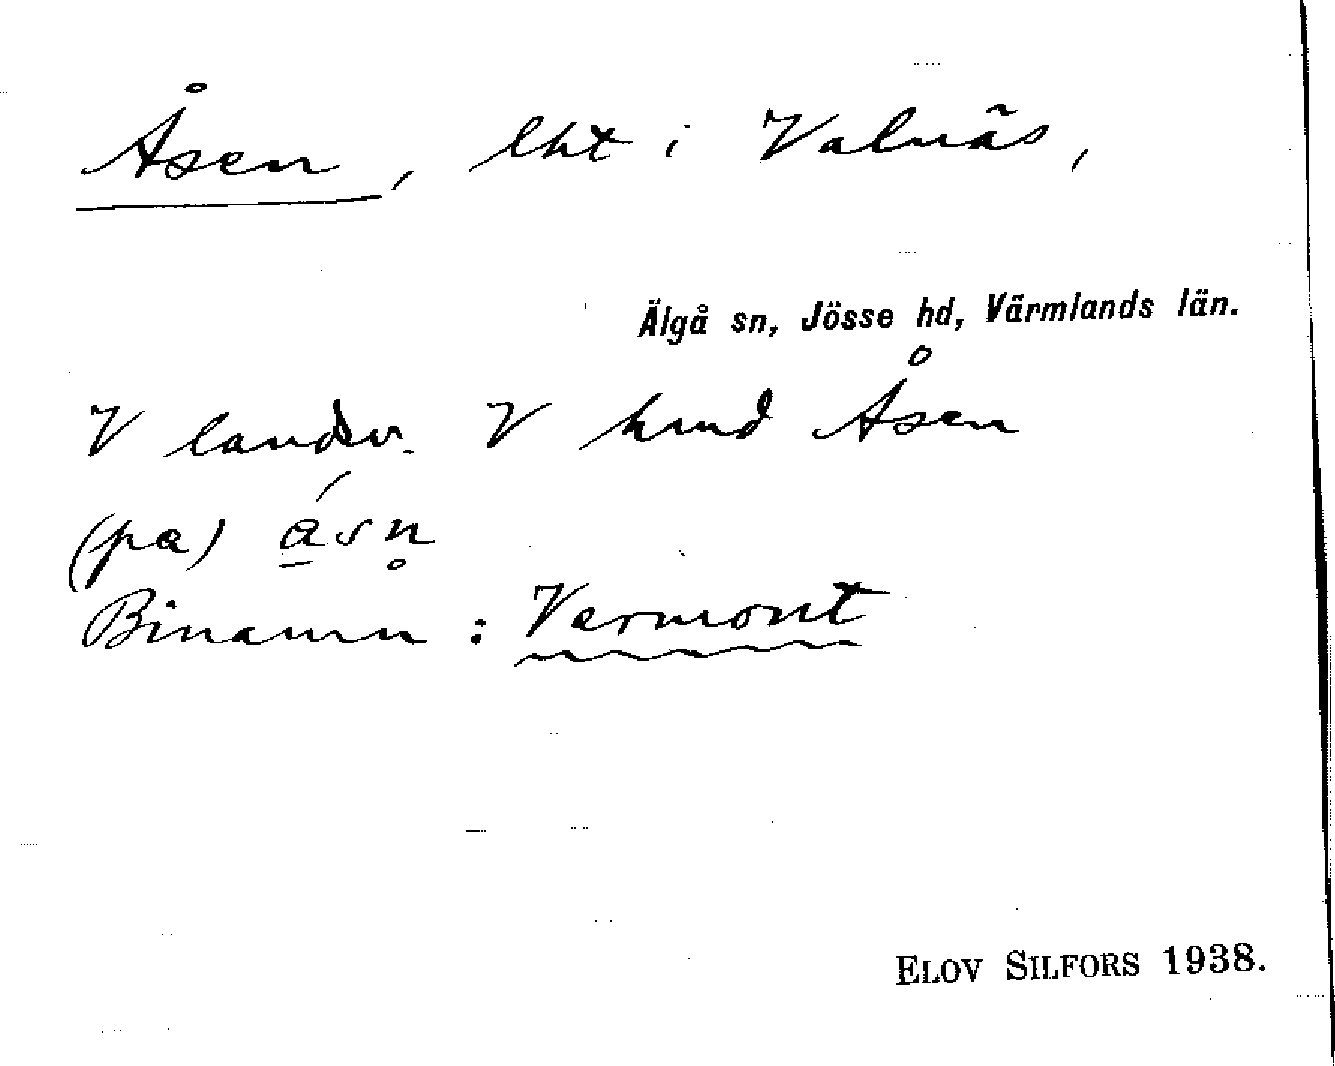 Åsen, lht i Valnäs,
Älgå sn, Jösse hd, Värmlands län.
V landsv. V hmd Åsen
(pa) ásn̥
Binamn: Vermont
ELOV SILFORS 1938.